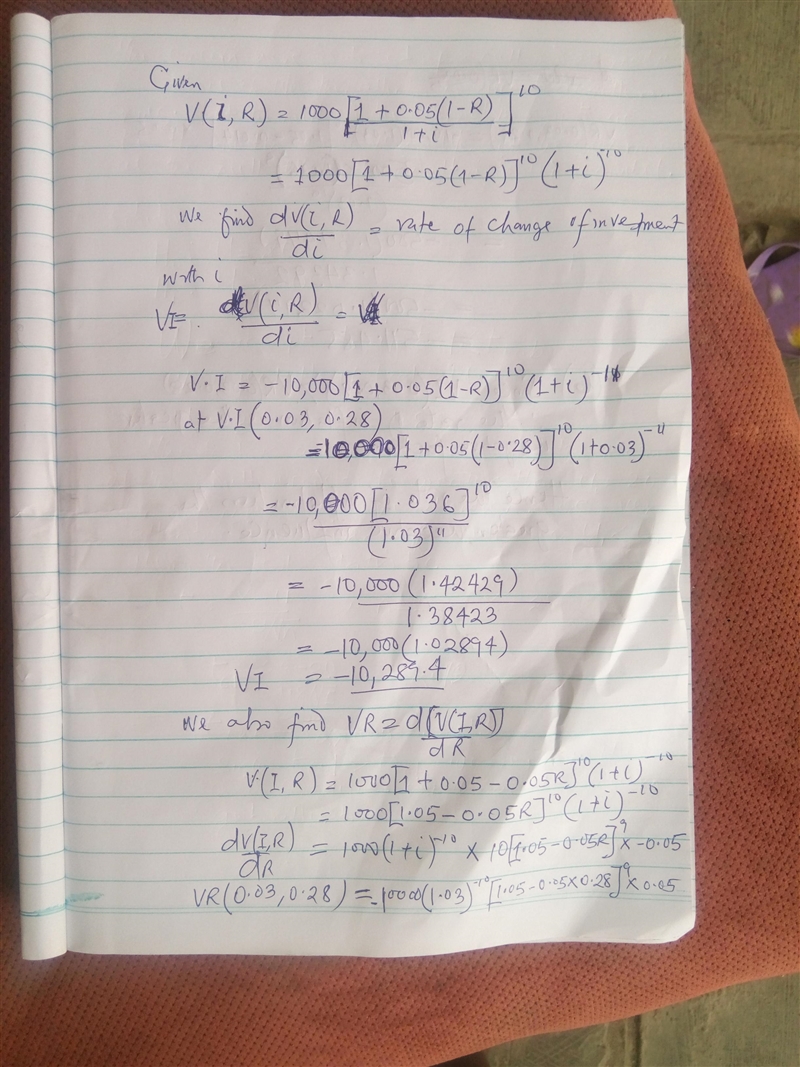 Given
V(i, R) = 1000[1 + 0.05(1-R)]^10
1+i
= 1000[1 + 0.05(1-R)]^10 (1+i)^-10
We find dV(i, R) = rate of change of investment
di
with i
VI = dV(i, R) =
di
V.I = -10,000[1 + 0.05(1-R)]^10 (1+i)^-11
at V.I(0.03, 0.28)
= -10,000[1+0.05(1-0.28)]^10 (1+0.03)^-11
= -10,000[1.036]^10
(1.03)^11
= -10,000(1.42429)
1.38423
= -10,000(1.02894)
VI = -10,289.4
We also find VR = d[V(I,R)]
dR
V.(I, R) = 1000[1 + 0.05 - 0.05R]^10 (1+i)^-10
= 1000[1.05 - 0.05R]^10 (1+i)^-10
dV(I,R) = 1000(1+i)^-10 × 10[1.05 - 0.05R]^9 × -0.05
dR
VR(0.03, 0.28) = -10000(1.03)^-10 [1.05 - 0.05×0.28]^9 × 0.05